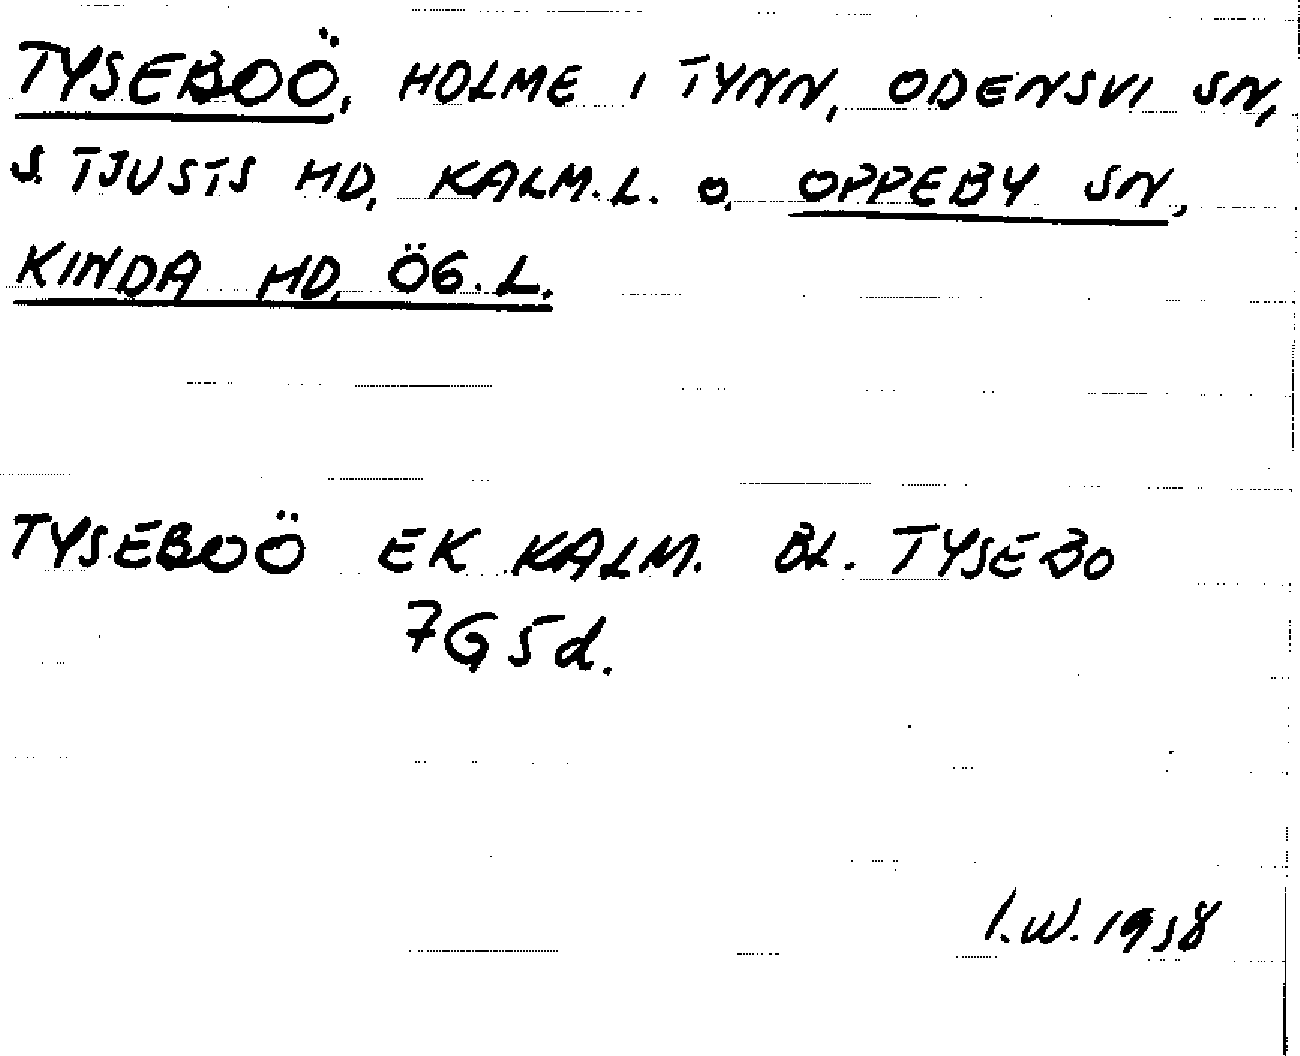 TYSEBOÖ, HOLME I TYNN, ODENSVI SN,
S. TJUSTS HD, KALM.L. O, OPPEBY SN,
KINDA HD, ÖG.L.
TYSEBOÖ EK KALM. BL. TYSEBO
7G5d.
I.W. 1958